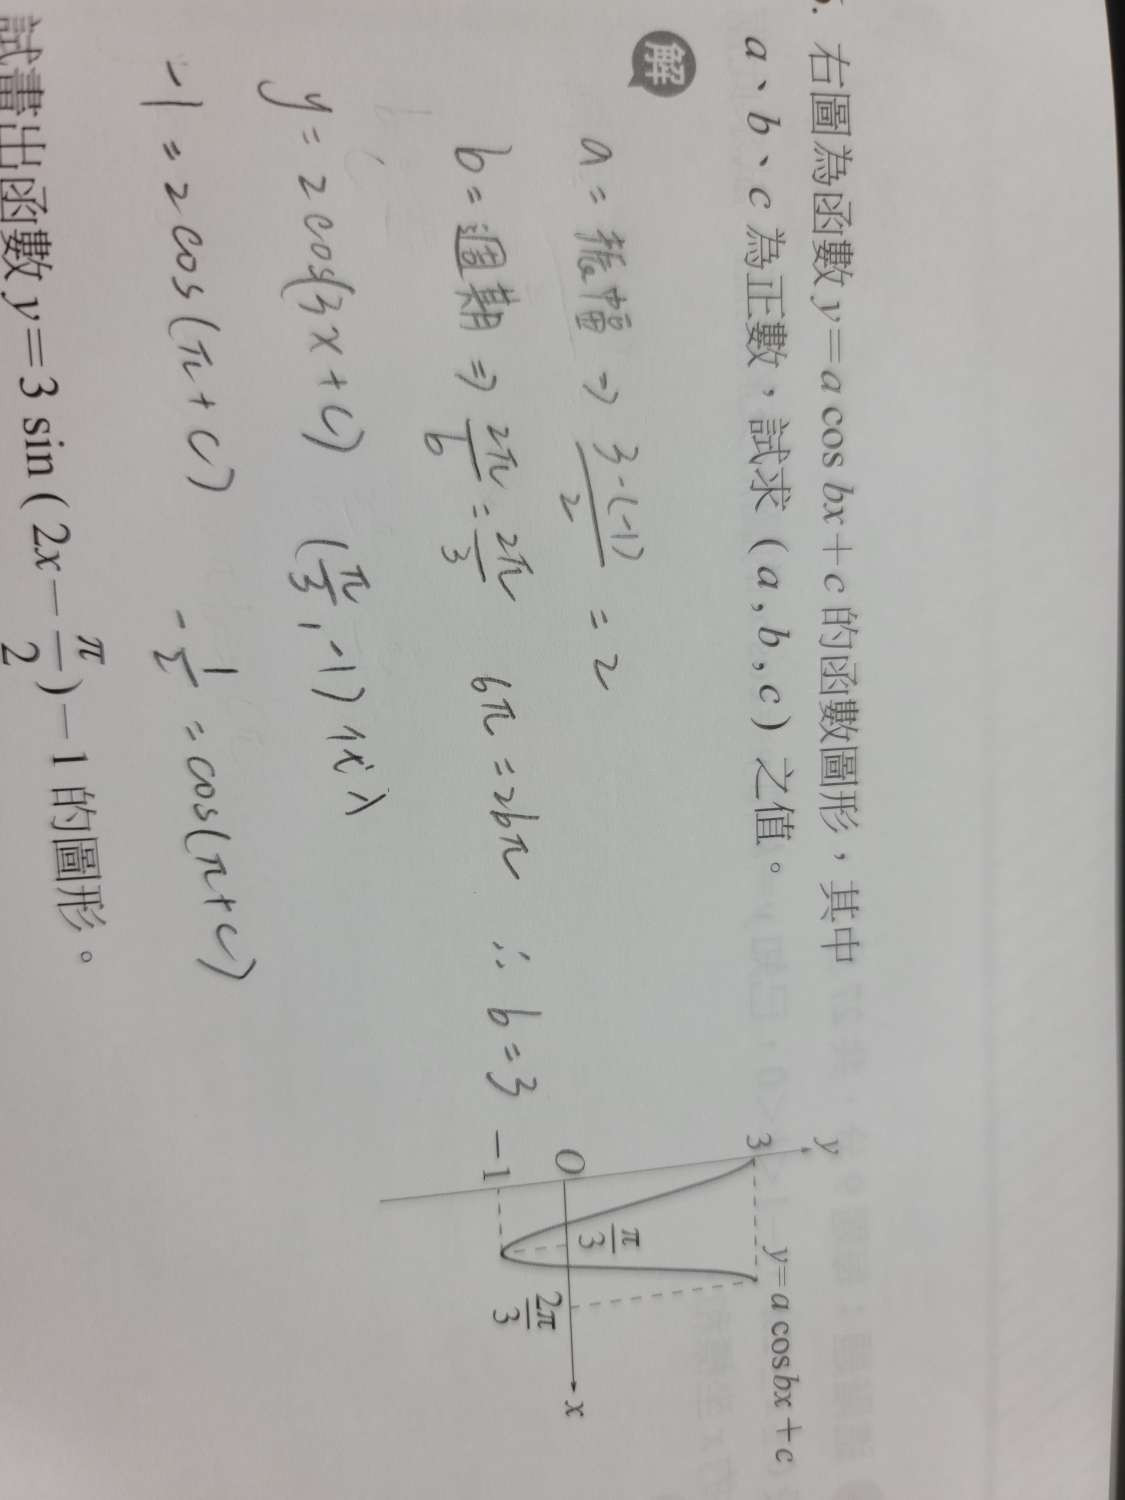 右圖為函數 y=a cos bx+c 的函數圖形，其中
a、b、c 為正數，試求 (a, b, c) 之值。
解
a = 振幅 ⇒ 3-(-1)/2 = 2
b = 週期 ⇒ 2π/b = 2π/3 6π = 2bπ ∴ b = 3
y = 2cos(3x+c) (π/3, -1) 代入
-1 = 2cos(π+c) -1/2 = cos(π+c)
y
3
y=a cosbx+c
O
π/3
2π/3
x
-1
試畫出函數 y=3 sin (2x-π/2)-1 的圖形。